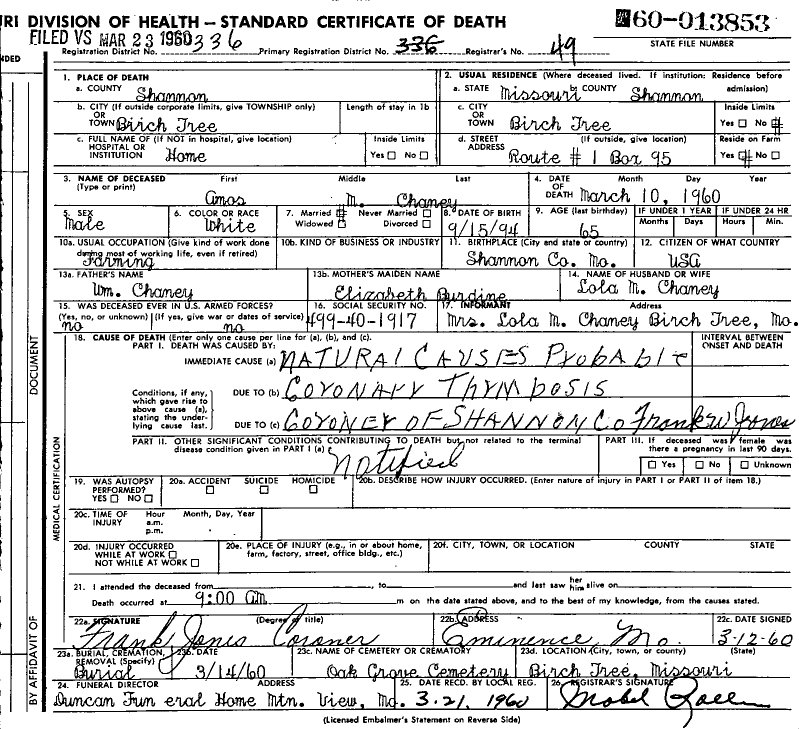 JRI DIVISION OF HEALTH — STANDARD CERTIFICATE OF DEATH 60-013853
FILED VS MAR 23 1960 336 Primary Registration District No. 336 Registrar's No. 49 STATE FILE NUMBER
Registration District No.
NDED
1. PLACE OF DEATH 2. USUAL RESIDENCE (Where deceased lived. If institution: Residence before admission)
a. COUNTY Shannon a. STATE Missouri b. COUNTY Shannon
b. CITY (If outside corporate limits, give TOWNSHIP only) OR TOWN Birch Tree Length of stay in 1b c. CITY OR TOWN Birch Tree Inside Limits Yes No
c. FULL NAME OF (If NOT in hospital, give location) HOSPITAL OR INSTITUTION Home Inside Limits Yes No d. STREET ADDRESS (If outside, give location) Route # 1 Box 95 Reside on Farm Yes No
3. NAME OF DECEASED (Type or print) First Middle Last 4. DATE OF DEATH Month Day Year
Amos M. Chaney March 10, 1960
5. SEX 6. COLOR OR RACE 7. Married Never Married Widowed Divorced 8. DATE OF BIRTH 9. AGE (last birthday) IF UNDER 1 YEAR IF UNDER 24 HR
Male White 9/15/94 65 Months Days Hours Min.
10a. USUAL OCCUPATION (Give kind of work done during most of working life, even if retired) 10b. KIND OF BUSINESS OR INDUSTRY 11. BIRTHPLACE (City and state or country) 12. CITIZEN OF WHAT COUNTRY
Farming Shannon Co. Mo. USA
13a. FATHER'S NAME 13b. MOTHER'S MAIDEN NAME 14. NAME OF HUSBAND OR WIFE
Wm. Chaney Elizabeth Burdine Lola M. Chaney
15. WAS DECEASED EVER IN U.S. ARMED FORCES? 16. SOCIAL SECURITY NO. 17. INFORMANT Address
(Yes, no, or unknown) (If yes, give war or dates of service)
no no 499-40-1917 Mrs. Lola M. Chaney Birch Tree, Mo.
18. CAUSE OF DEATH (Enter only one cause per line for (a), (b), and (c). INTERVAL BETWEEN ONSET AND DEATH
PART I. DEATH WAS CAUSED BY:
IMMEDIATE CAUSE (a) NATURAL CAUSES PROBABLE
Conditions, if any, which gave rise to above cause (a), stating the underlying cause last.
DUE TO (b) CORONARY THYMBOSIS
DUE TO (c) CORONEY OF SHANNON CO Frank W Jones
PART II. OTHER SIGNIFICANT CONDITIONS CONTRIBUTING TO DEATH but not related to the terminal disease condition given in PART I (a) PART III. If deceased was female was there a pregnancy in last 90 days.
Notified Yes No Unknown
19. WAS AUTOPSY PERFORMED? YES NO 20a. ACCIDENT SUICIDE HOMICIDE 20b. DESCRIBE HOW INJURY OCCURRED. (Enter nature of injury in PART I or PART II of item 18.)
20c. TIME OF INJURY Hour a.m. p.m. Month, Day, Year
20d. INJURY OCCURRED WHILE AT WORK NOT WHILE AT WORK 20e. PLACE OF INJURY (e.g., in or about home, farm, factory, street, office bldg., etc.) 20f. CITY, TOWN, OR LOCATION COUNTY STATE
21. I attended the deceased from , to and last saw her him alive on
Death occurred at 9:00 am m on the date stated above, and to the best of my knowledge, from the causes stated.
22a. SIGNATURE (Degree or title) 22b. ADDRESS 22c. DATE SIGNED
Frank Jones Coroner Eminence, Mo. 3-12-60
23a. BURIAL, CREMATION, REMOVAL (Specify) 23b. DATE 23c. NAME OF CEMETERY OR CREMATORY 23d. LOCATION (City, town, or county) (State)
Burial 3/14/60 Oak Grove Cemetery Birch Tree, Missouri
24. FUNERAL DIRECTOR ADDRESS 25. DATE RECD. BY LOCAL REG. 26. REGISTRAR'S SIGNATURE
Duncan Fun eral Home Mtn. View, Mo. 3.21, 1960 Mabel
(Licensed Embalmer's Statement on Reverse Side)
DOCUMENT
MEDICAL CERTIFICATION
BY AFFIDAVIT OF